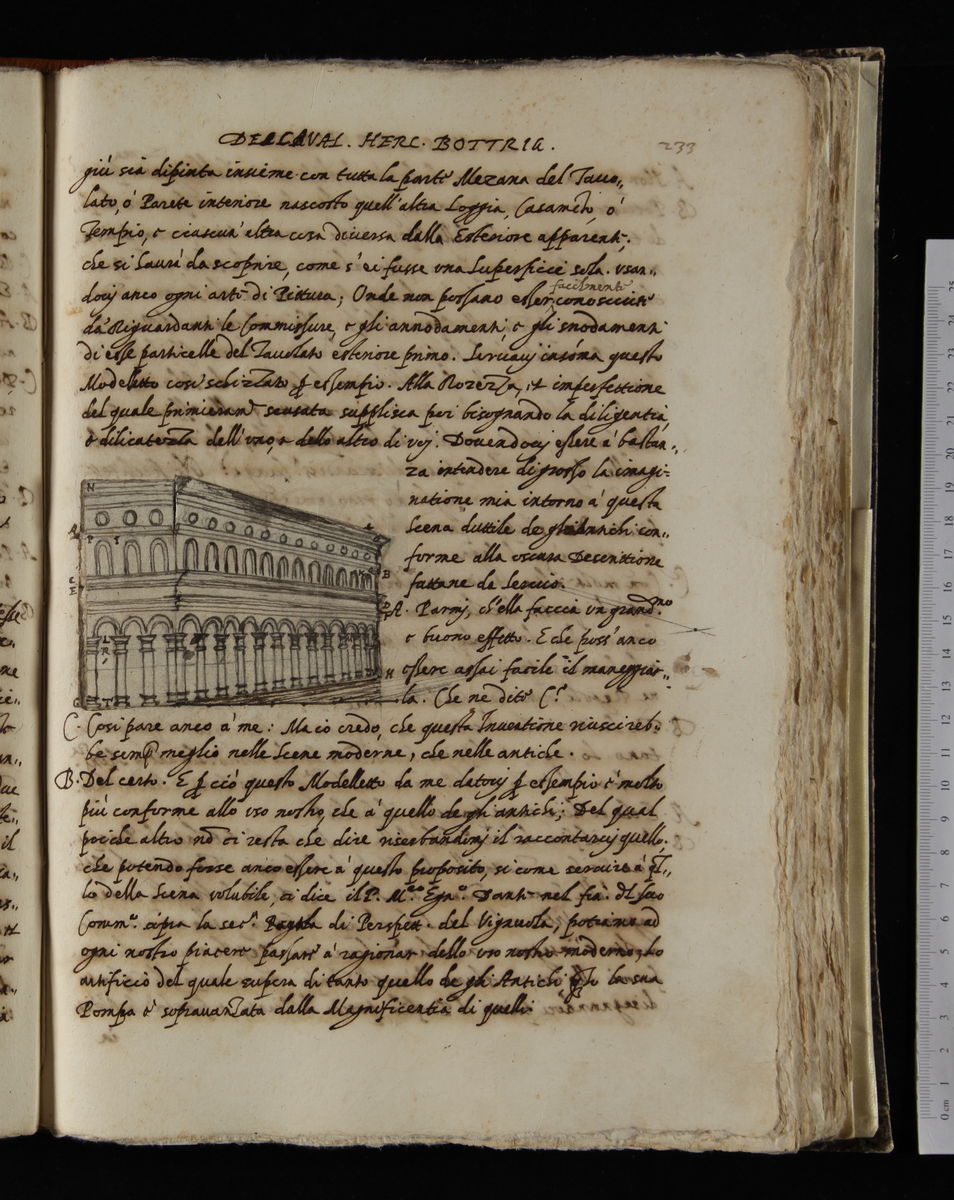 DEL CAVAL. HERC. BOTTRIG.
233
più sia dipinta insieme con tutta la parte Mezana del Tavo,,
lato, ò Parete interiore nascosto quell'altra Loggia, Casamẽto, ò
Tempio, e ciascun' altra cosa diversa dalla Esteriore apparente,
che si haurà da scoprire, come s'ei fusse una superficie sola. usan,,
dovj anco ogni arte di Pittura; Onde non possano esser facilmente conosciute
da Riguardanti le Commissure, e gli annodamenti, e gli snodamenti
di esse particelle del Tavolato esteriore primo. Servavj insõma questo
Modelletto così schizzato ꝑ essempio. Alla Rozezza, et imperfettione
del quale primieram.te scusata supplisca poi bisognando la diligentia,
e dilicatezza dell'uno, e dello altro di voj. Dovendovj essere à bastan,,
za intendere di grosso la imagi-
natione mia intorno à questa
Scena duttile de gli Antichi con,,
forme alla oscura Descrittione
fattane da Servio.
A. Parmj, ch'ella faccia un grand.mo
e buono effetto. E che poss'anco
essere assai facile il maneggiar,,
la. Che ne dite C?
C. Così pare anco à me: Ma io credo, che questa Inventione riuscireb-
be semp̃ meglio nelle Scene moderne, che nelle antiche.
B. Del certo. E ꝑ ciò questo Modelletto da me datovj ꝑ essempio è molto
più conforme allo uso nostro, che à quello de gli antichi; Del qual
poiche altro nõ ci resta che dire riserbandomj il raccontarvj quello,
che potendo forse anco essere à questo proposito, si come servire à q̃l,,
lo della Scena volubile, ci dice il P. M.ro Egn.o Danti nel fin del suo
Comm.o sopra la sec.a Regola di Perspet. del Vignuola, potiamo ad
ogni nostro piacere passare à ragionar dello uso nostro moderno, lo
artificio del quale supera di tanto quello de gli Antichi q̃to la sua
Pompa è sopravanzata dalla Magnificentia di quelli.